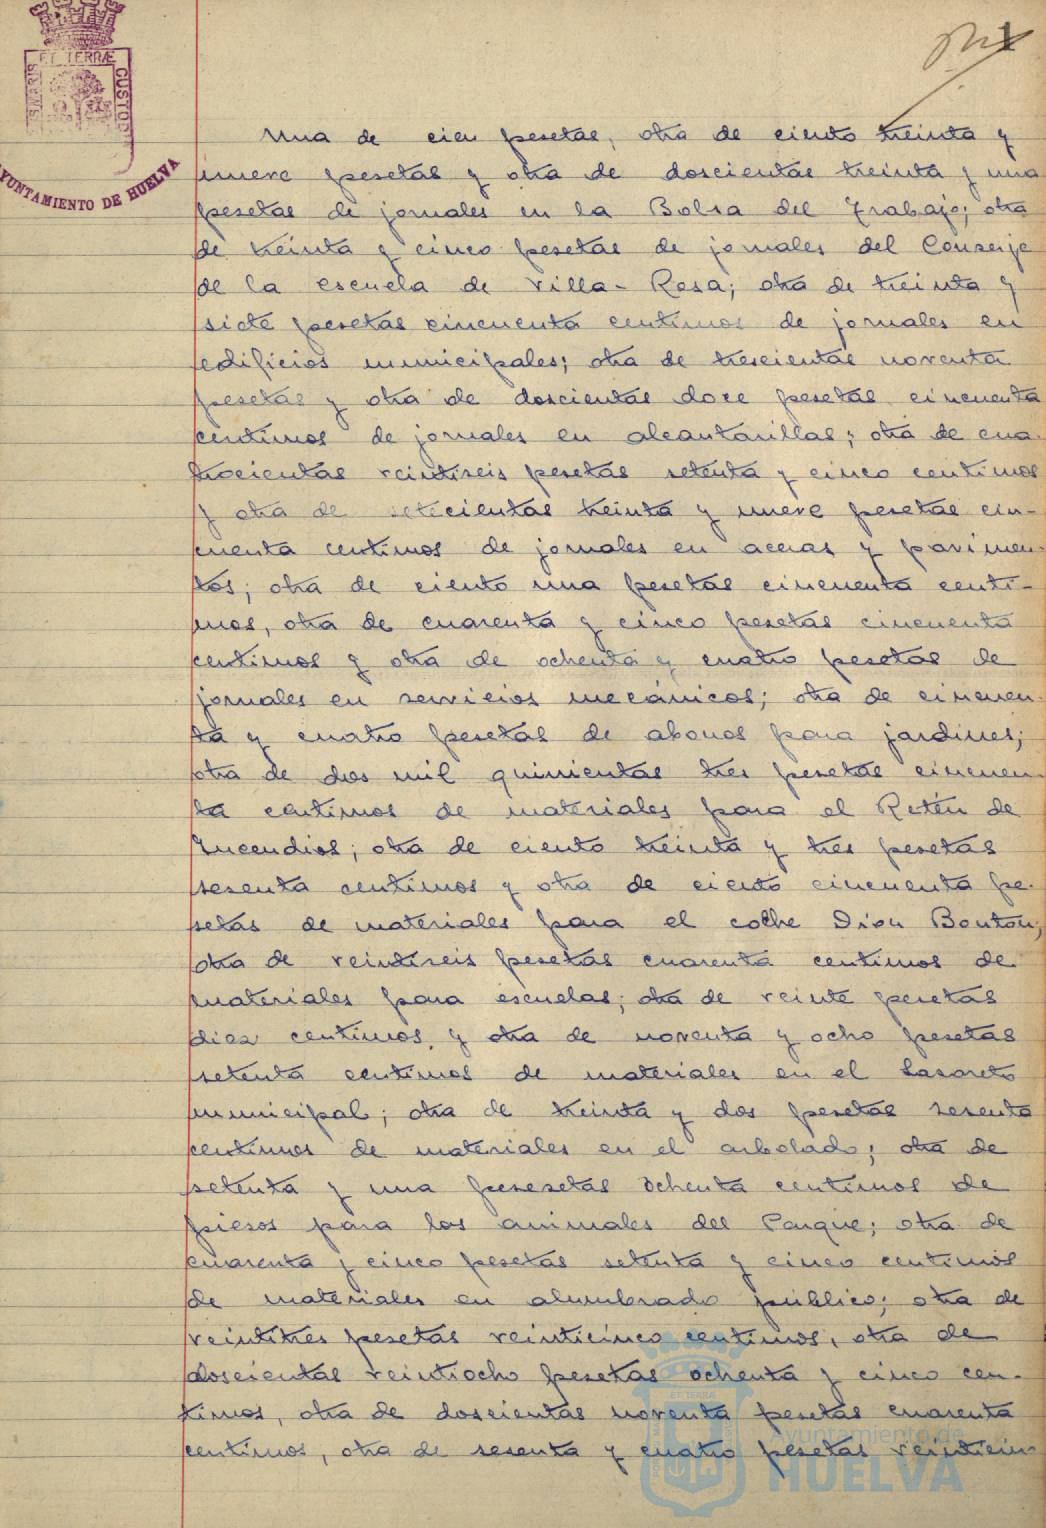 ET TERRÆ
S MARIS
CUSTOD
AYUNTAMIENTO DE HUELVA
una de cien pesetas, otra de ciento treinta y
nueve pesetas y otra de doscientas treinta y una
pesetas de jornales en la Bolsa del Trabajo; otra
de treinta y cinco pesetas de jornales del Conserje
de la escuela de Villa-Rosa; otra de treinta y
siete pesetas cincuenta centimos de jornales en
edificios municipales; otra de trescientas noventa
pesetas y otra de doscientas doce pesetas cincuenta
centimos de jornales en alcantarillas; otra de cua-
trocientas veintiseis pesetas setenta y cinco centimos
y otra de setecientas treinta y nueve pesetas cin-
cuenta centimos de jornales en aceras y pavimen-
tos; otra de ciento una pesetas cincuenta centi-
mos, otra de cuarenta y cinco pesetas cincuenta
centimos y otra de ochenta y cuatro pesetas de
jornales en servicios mecánicos; otra de cincuen-
ta y cuatro pesetas de abonos para jardines;
otra de dos mil quinientas tres pesetas cincuen-
ta centimos de materiales para el Retén de
Incendios; otra de ciento treinta y tres pesetas
sesenta centimos y otra de ciento cincuenta pe-
setas de materiales para el coche Dion Bouton;
otra de veintiseis pesetas cuarenta centimos de
materiales para escuelas; otra de veinte pesetas
diez centimos, y otra de noventa y ocho pesetas
setenta centimos de materiales en el Lazareto
municipal; otra de treinta y dos pesetas sesenta
centimos de materiales en el arbolado; otra de
setenta y una pesesetas ochenta centimos de
piesos para los animales del Parque; otra de
cuarenta y cinco pesetas setenta y cinco centimos
de materiales en alumbrado público; otra de
veintitres pesetas veinticinco centimos, otra de
doscientas veintiocho pesetas ochenta y cinco cen-
timos, otra de doscientas noventa pesetas cuarenta
centimos, otra de sesenta y cuatro pesetas veinticin
Ayuntamiento de
HUELVA